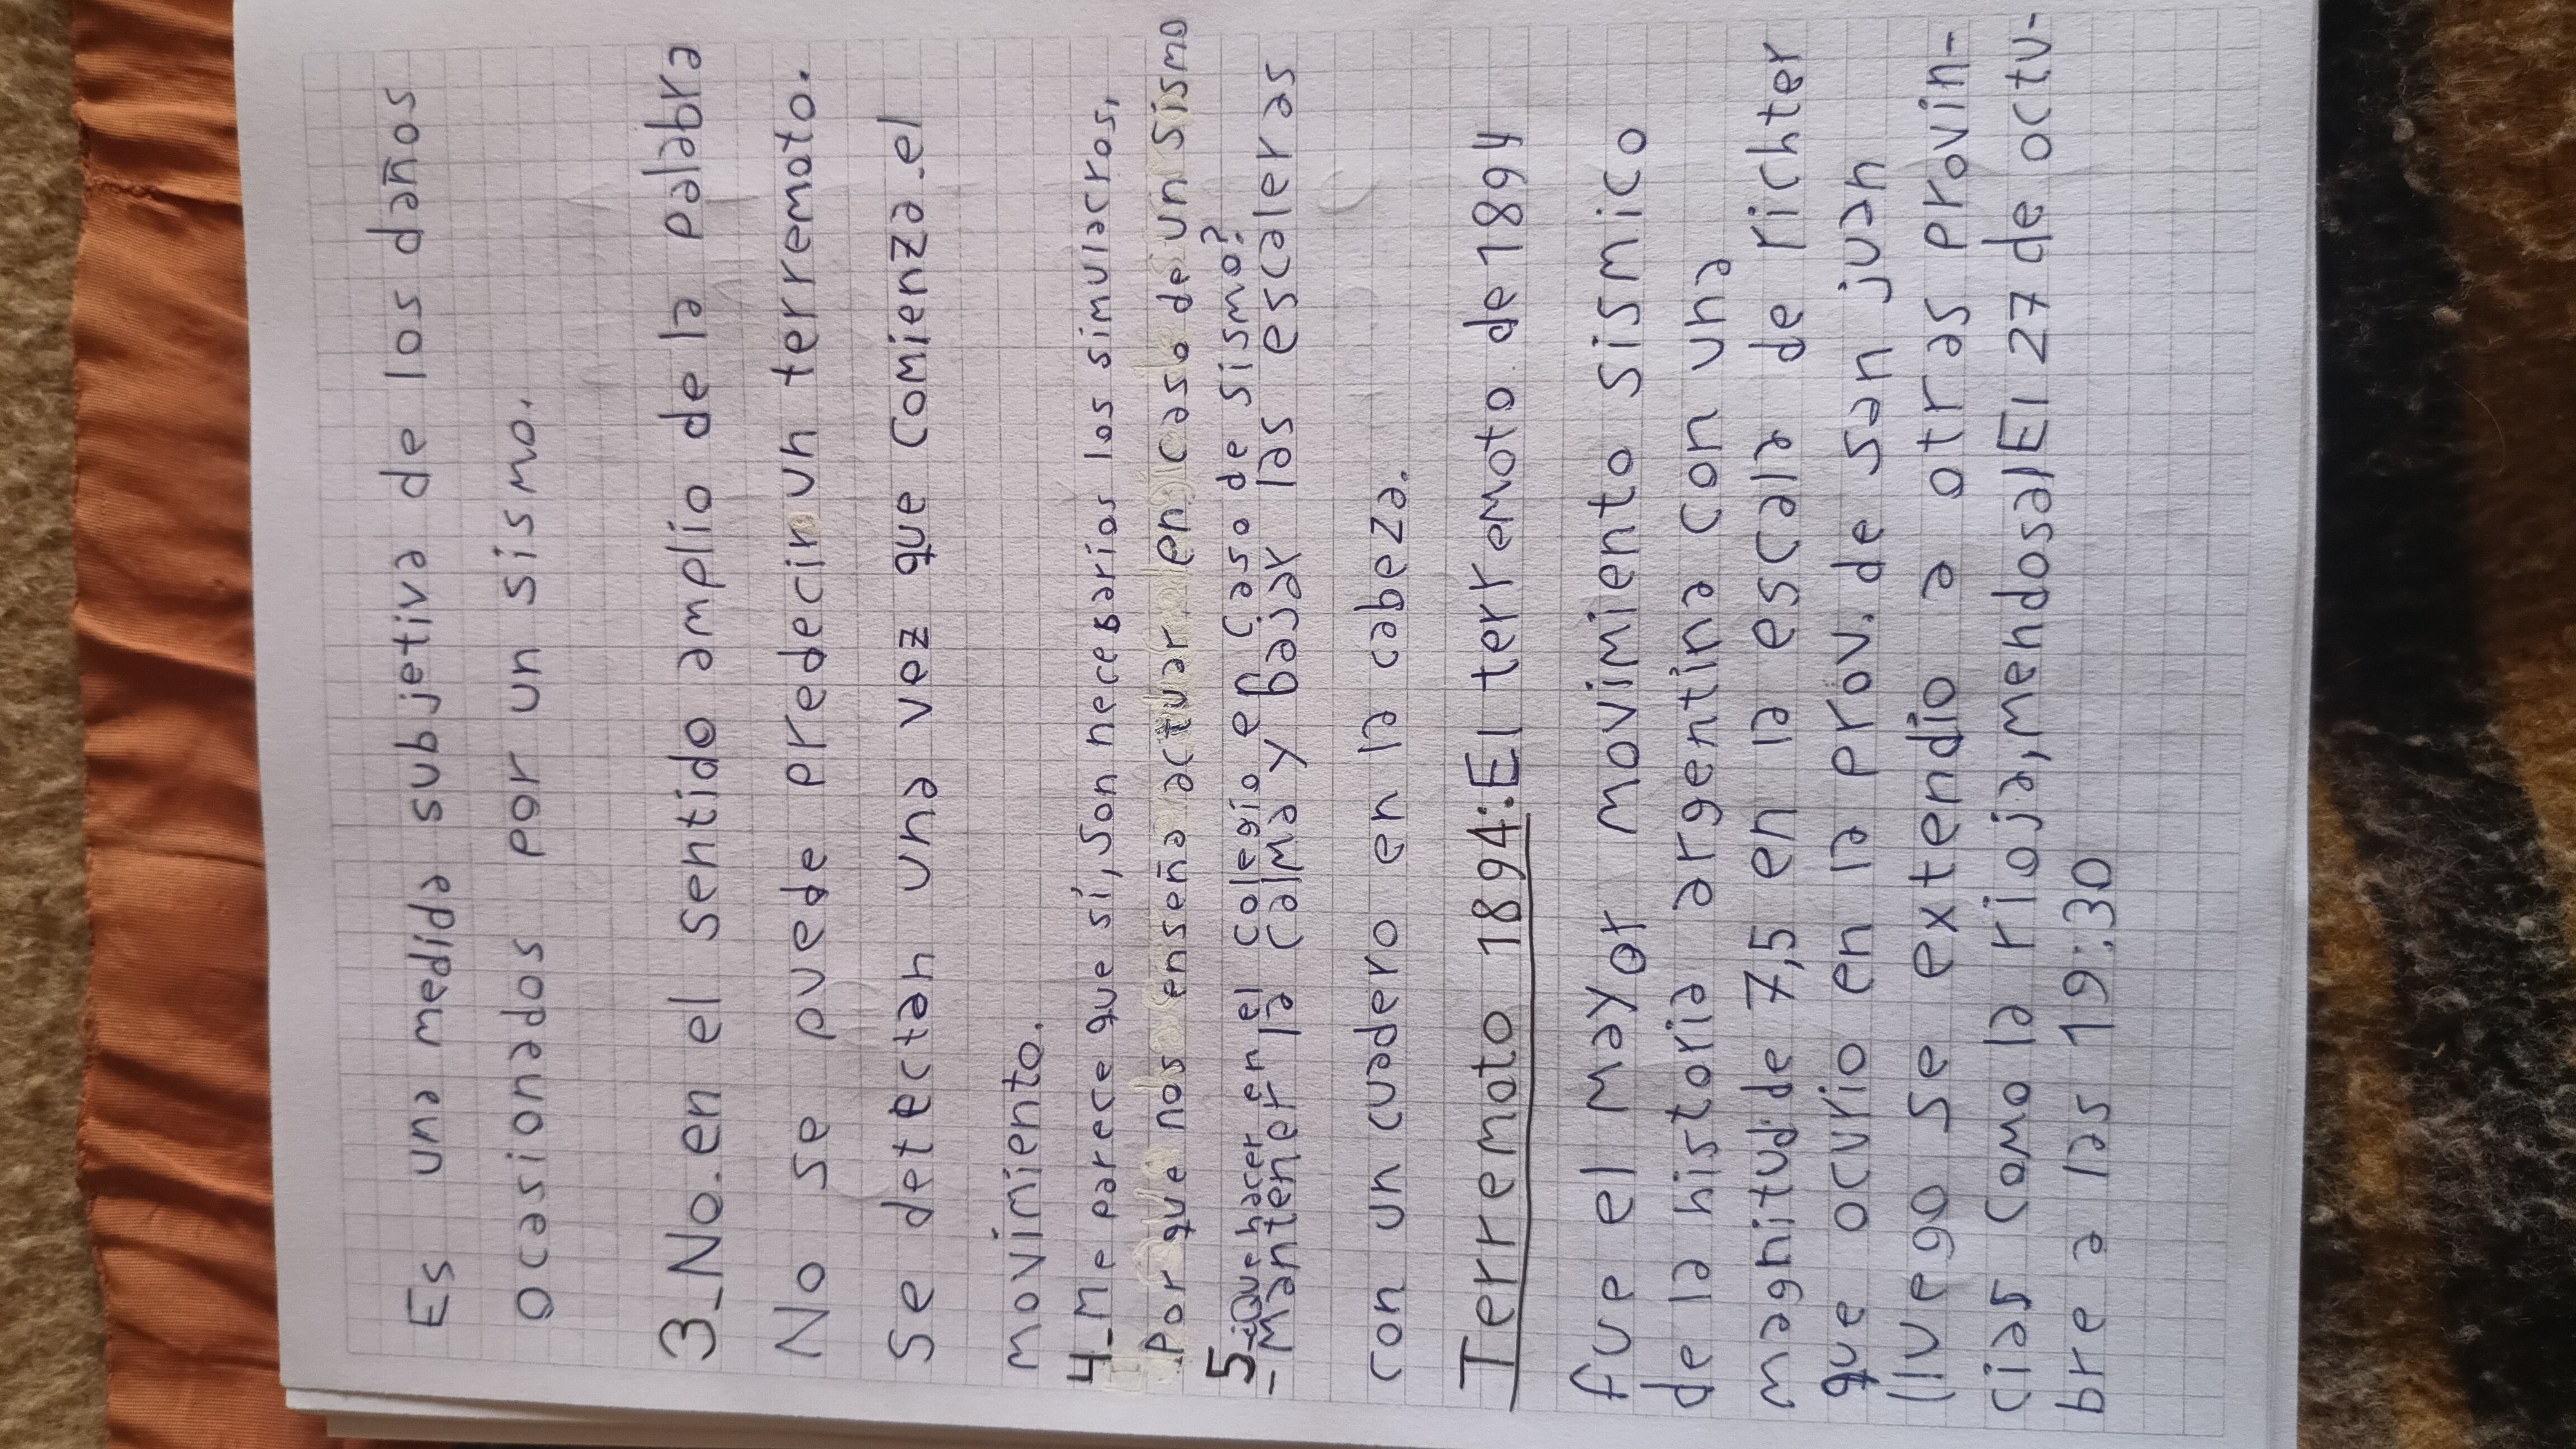 Es una medida subjetiva de los daños
ocasionados por un sismo.
3_No. en el sentido amplio de la palabra
No se puede predecir un terremoto.
Se detectan una vez que comienza. el
movimiento.
4_Me parece que sí, son necesarios los simulacros,
Por que nos enseña actuar en caso de un sismo
5_¿Que hacer en el colegio en caso de sismo?
-Mantener la calma y bajar las escaleras
con un cuadero en la cabeza.
Terremoto 1894: El terremoto de 1894
fue el mayor movimiento sismico
de la historia argentina con una
magnitud de 7,5 en la escala de richter
que ocurio en la prov. de san juan
(luego se extendio a otras provin-
cias como la rioja, mendosa) El 27 de octu-
bre a las 19:30